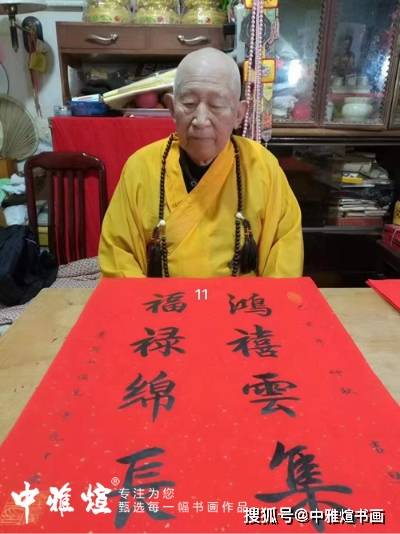 鴻禧雲集
福禄綿長
11
中雅煊®
专注为您
甄选每一幅书画作品
搜狐号@中雅煊书画